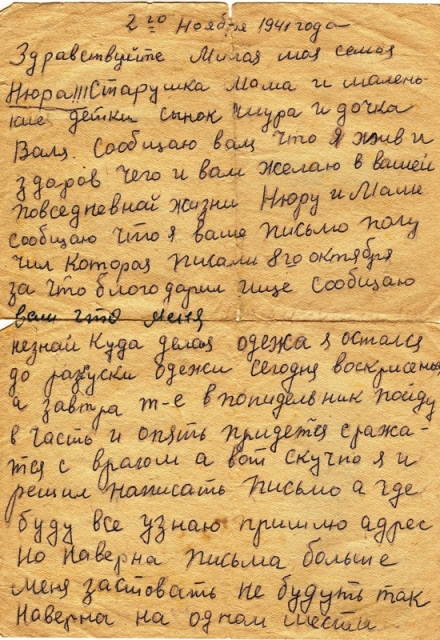 2го Ноября 1941 года
Здравствуйте Милая моя семья
Нюра!!! Старушка Мама и мален-
кие детки сынок Шура и дочка
Валя. Сообщаю вам что я жив и
здаров чего и вам желаю в вашей
повседневнай жизни Нюру и Маме
сообщаю что я ваше письмо полу
чил Которая писали 8го октября
за что благодарил ище сообщаю
вам что меня
незнай Куда делая одежа я остался
до разуски одежи сегодня воскрисения
а завтра т-е в понидельник пойду
в часть и опять придется сража-
тся с врагом а вот скучно я и
решил написать письмо а где
буду все узнаю пришлю адрес
Но наверна письма больше
меня застовать не будуть так
наверна на одном мести